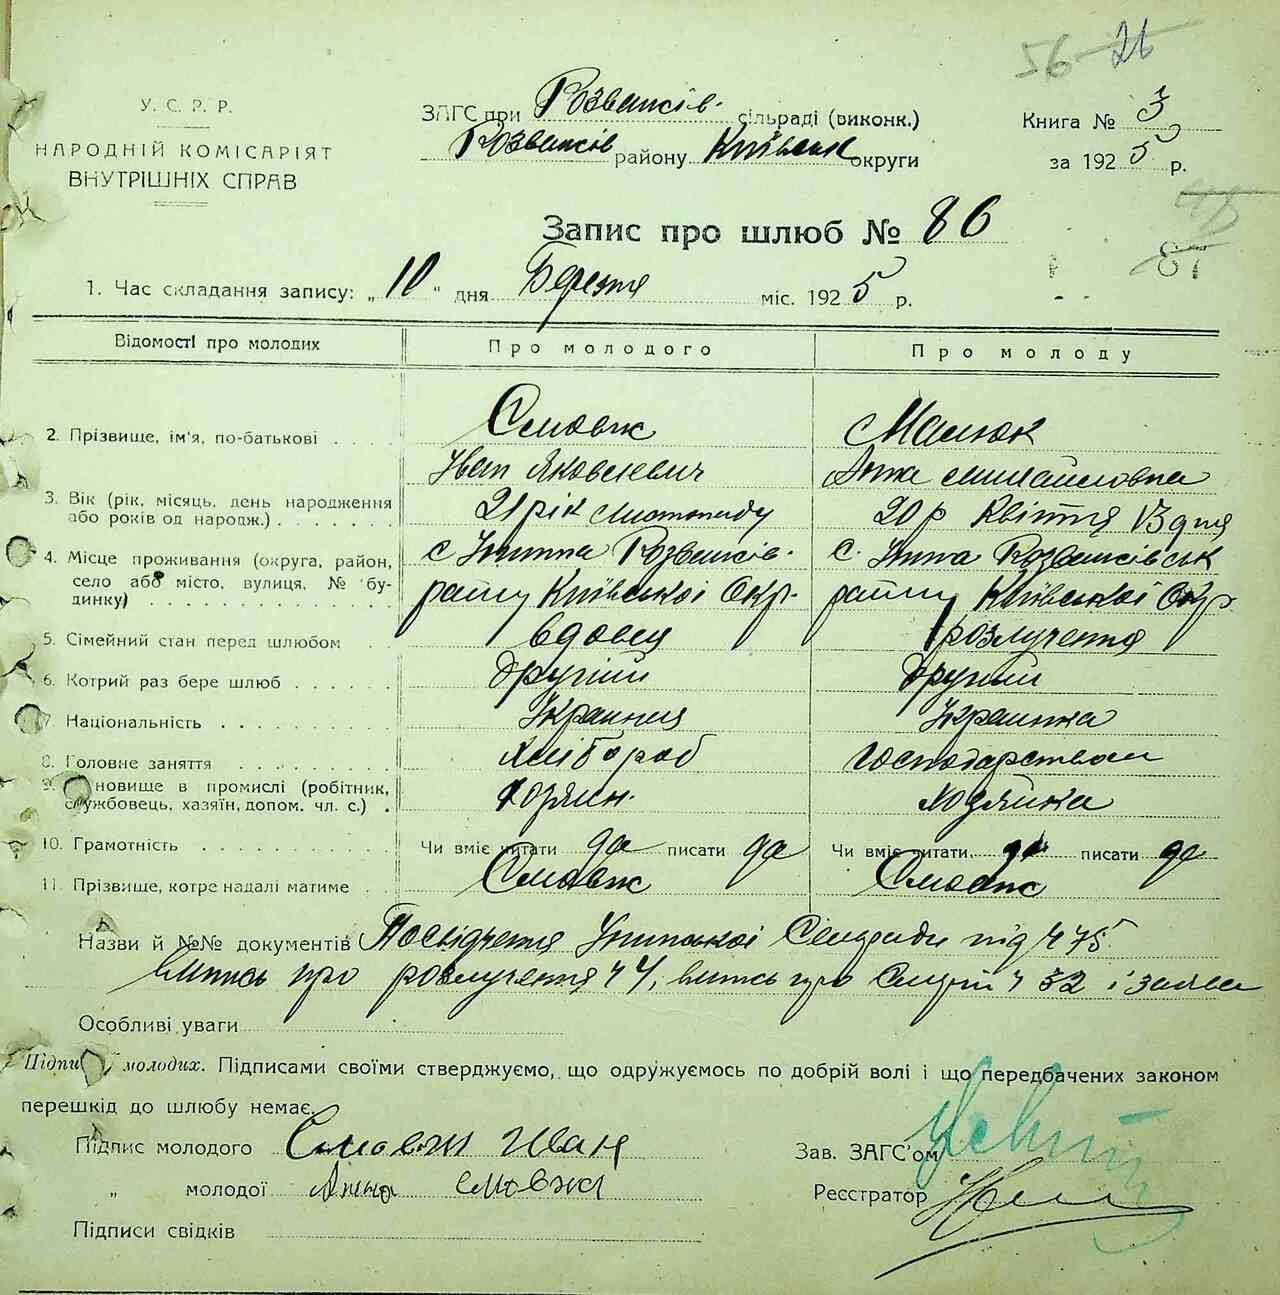 56 26
У. С. Р. Р.
НАРОДНІЙ КОМІСАРІЯТ
ВНУТРІШНІХ СПРАВ
ЗАГС при Розважів. сільраді (виконк.)
Розважів району Київськ округи
Книга № 3
за 1925 р.
Запис про шлюб № 86
87
1. Час складання запису: „10" дня Березня міс. 1925 р.
Відомості про молодих Про молодого Про молоду
2. Прізвище, ім'я, по-батькові Смовж Малюк
Іван Яковлевич Анна Михайловна
3. Вік (рік, місяць, день народження або років од народж.) 21 рік листопаду 20 р Квітня 13 дня
4. Місце проживання (округа, район, село або місто, вулиця, № будинку) с Розважів. с. Розважівськ
району Київської Окр. району Київської Окр.
5. Сімейний стан перед шлюбом вдовец розлучення
6. Котрий раз бере шлюб другий другий
7. Національність Украинец Украинка
8. Головне заняття хлібороб господарством
9. Становище в промислі (робітник, службовець, хазяїн, допом. чл. с.) хозяин. хозяйка
10. Грамотність Чи вміє читати да писати да Чи вміє читати да писати да
11. Прізвище, котре надалі матиме Смовж Смовж
Назви й №№ документів Посвідчення Сельради під ч 75
випись про розлучення ч 4, випись про смерть ч 32 і заява
Особливі уваги
Підписи молодих. Підписами своїми стверджуємо, що одружуємось по добрій волі і що передбачених законом
перешкід до шлюбу немає.
Підпис молодого Смовж Иван
„ молодої Анна Смовж
Підписи свідків
Зав. ЗАГС'ом
Реєстратор